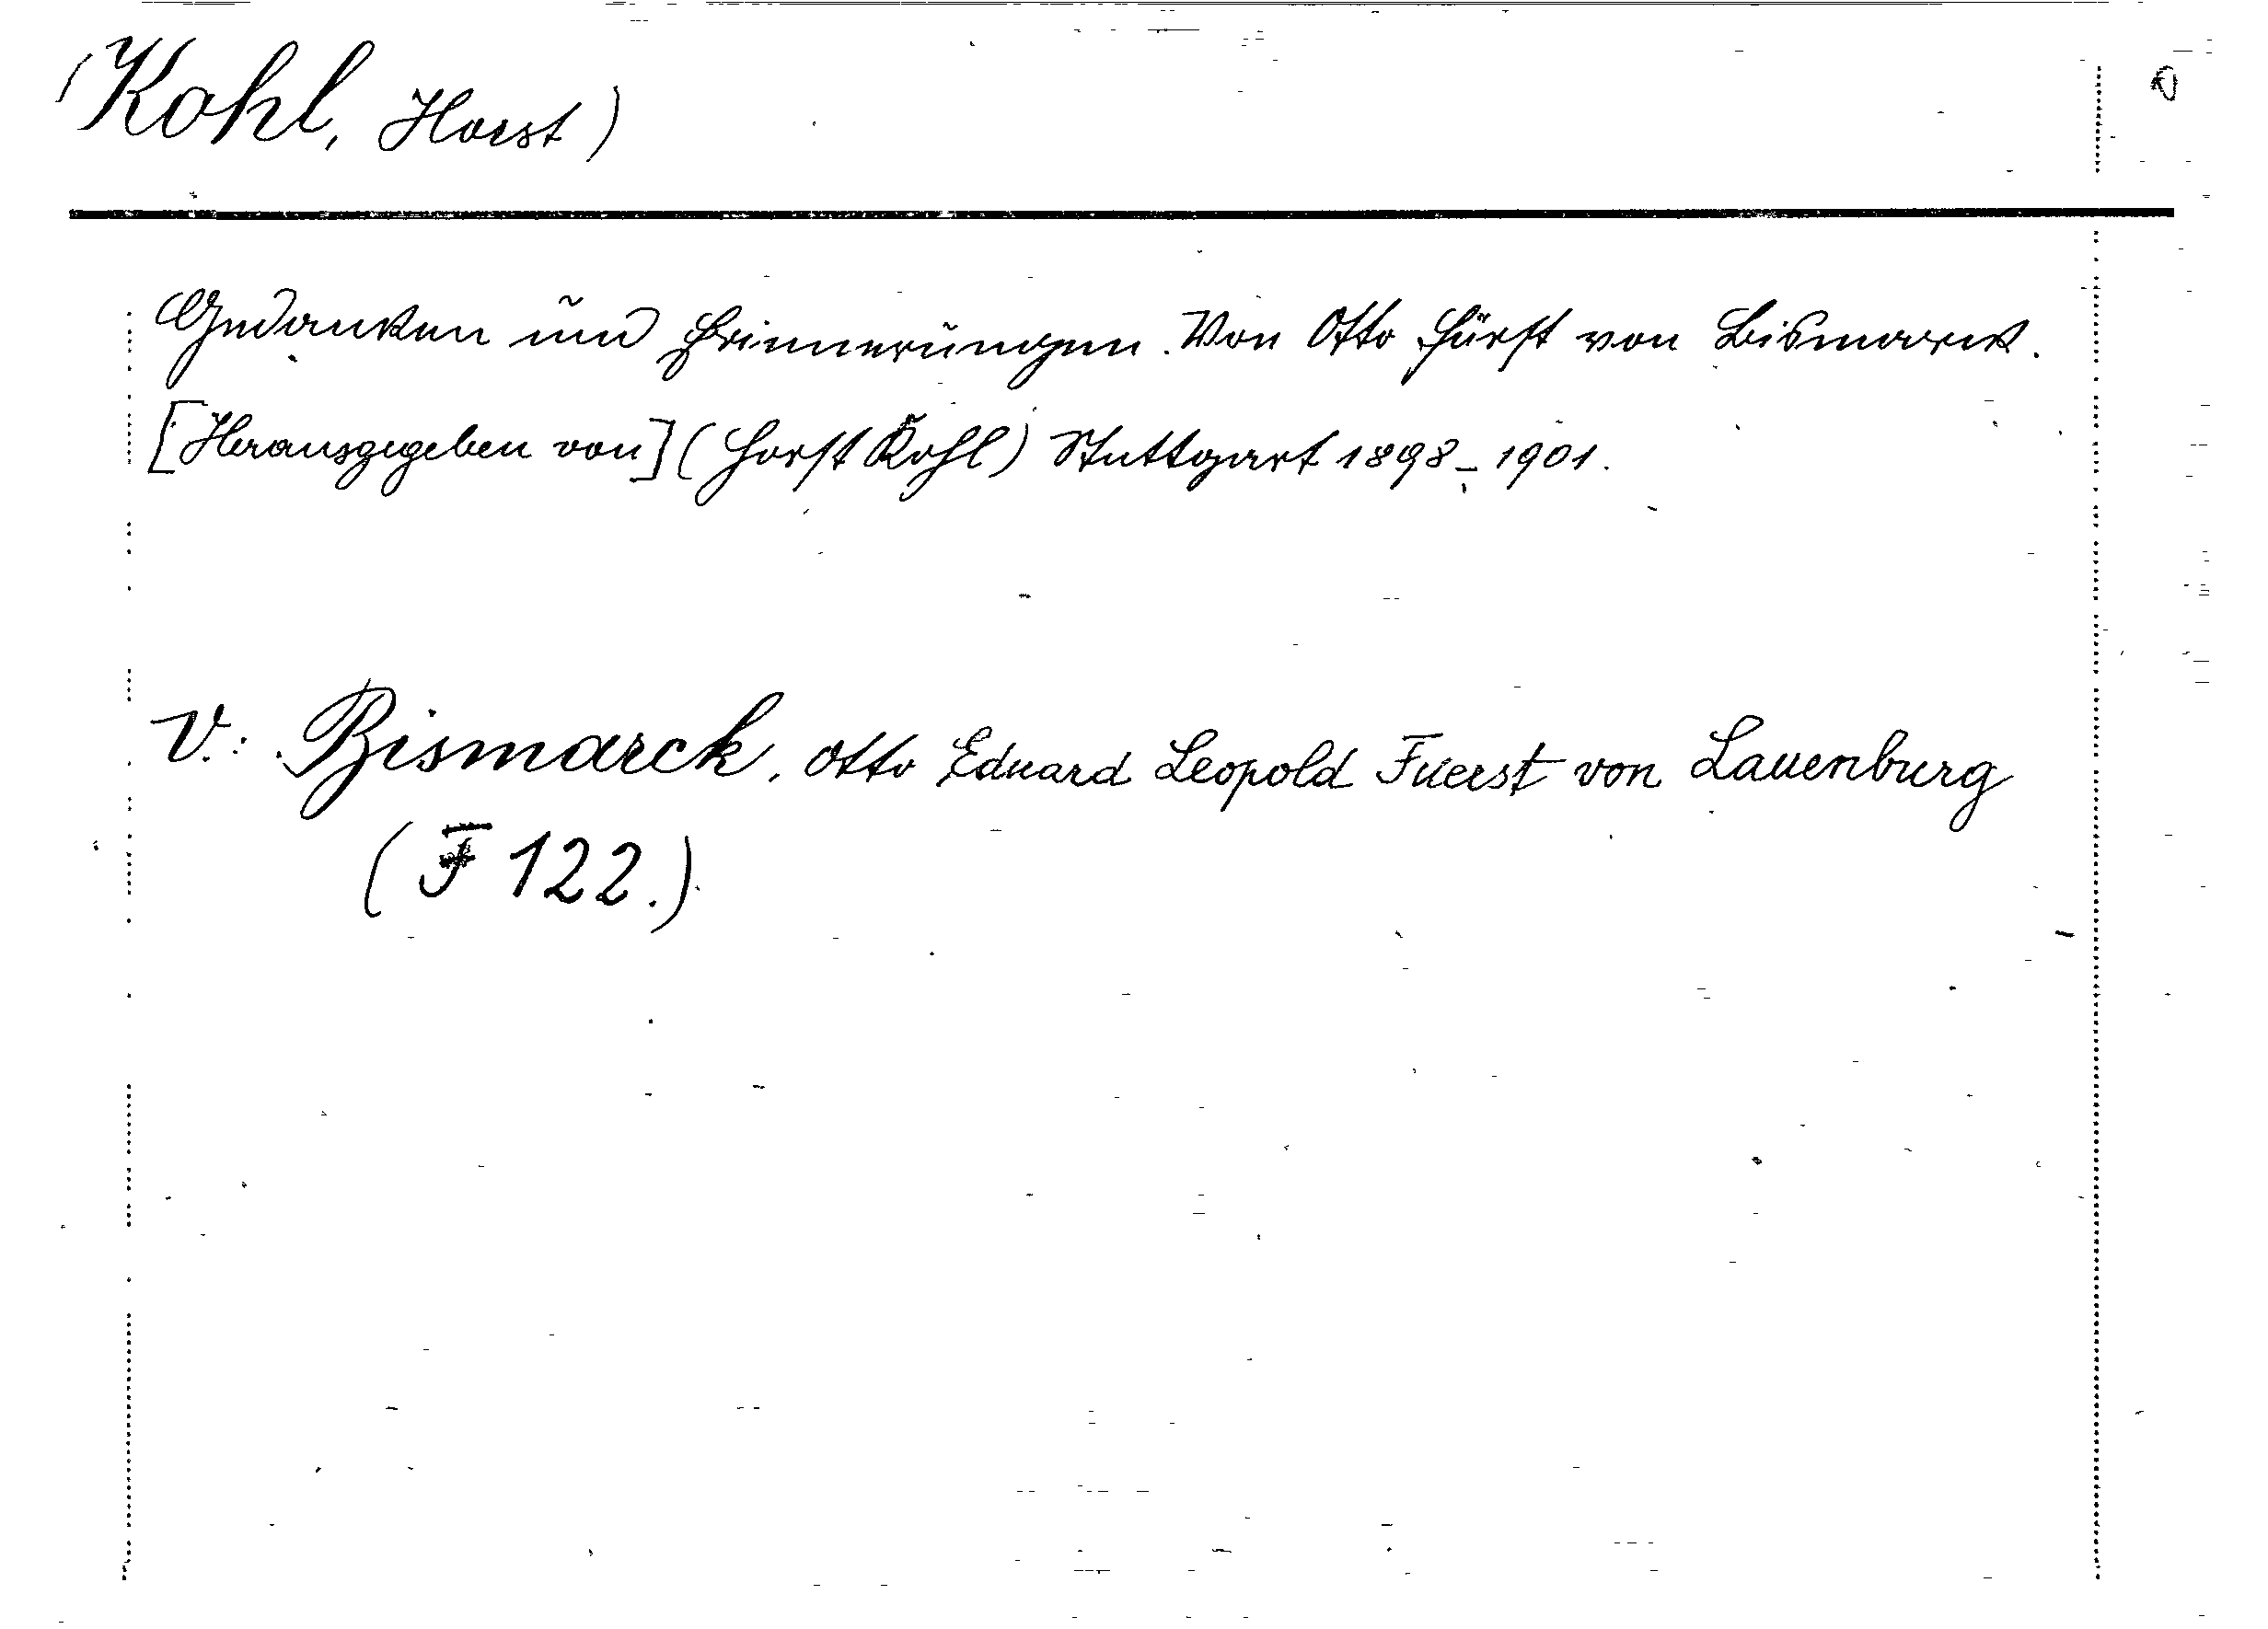 (Kohl, Horst)
Gedanken und Erinnerungen. Von Otto Fürst von Bismarck.
[Herausgegeben von] (Horst Kohl) Stuttgart 1898-1901.
V.: Bismarck, Otto Eduard Leopold Fuerst von Lauenburg
(F 122.)